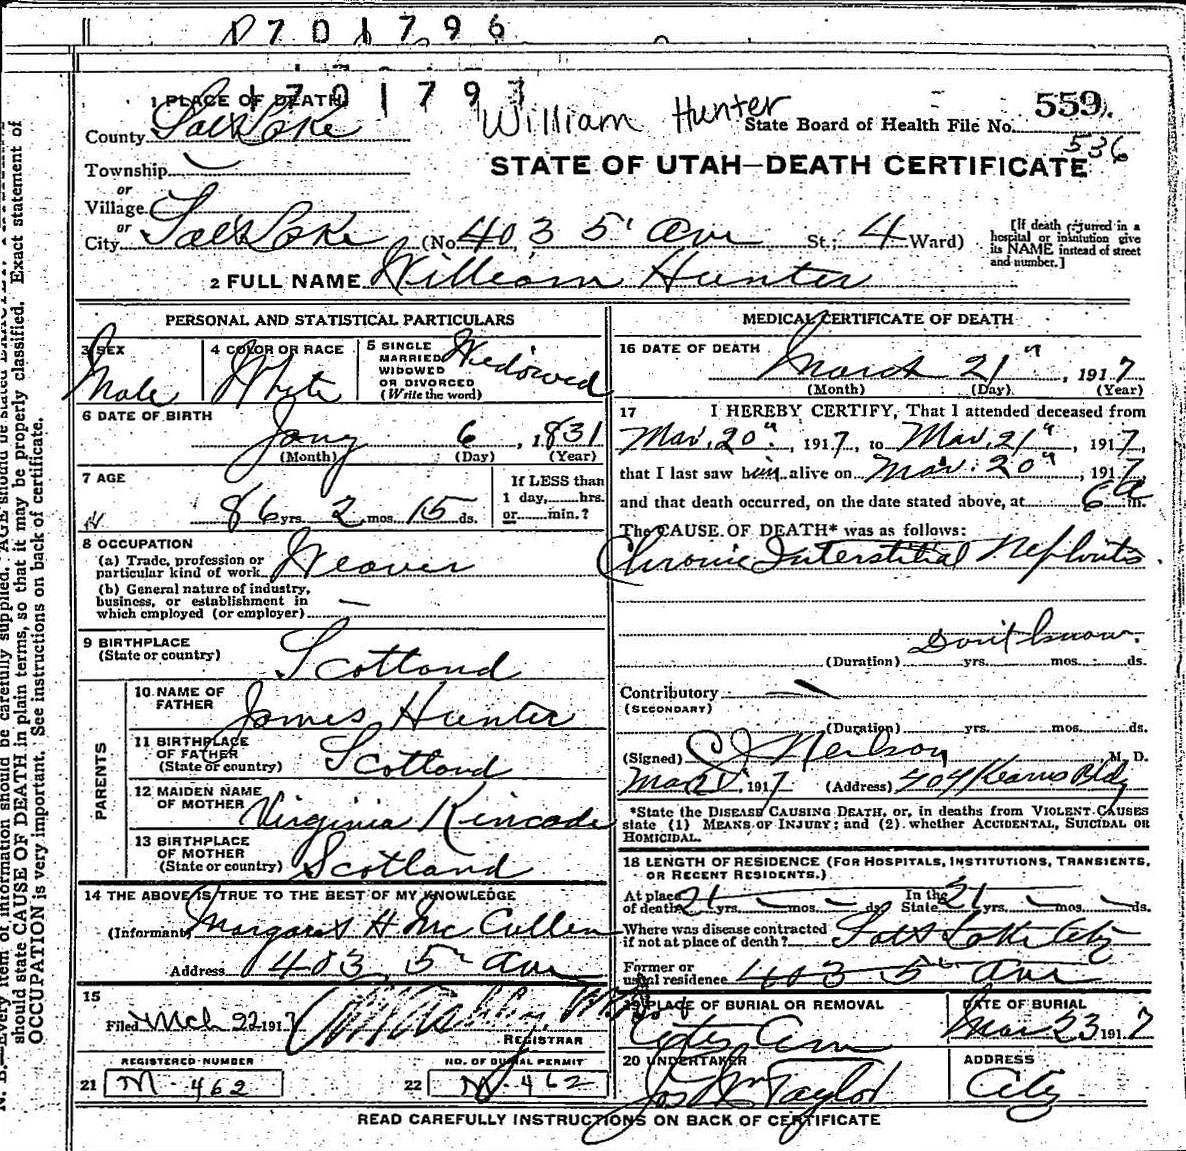 1701796
1701797
1 PLACE OF DEATH
William Hunter
559
County Salt Lake
State Board of Health File No.
536
Township
STATE OF UTAH—DEATH CERTIFICATE
or
Village
or
City Salt Lake (No. 403 5" Ave St.; 4 Ward)
[If death occurred in a
hospital or institution give
its NAME instead of street
and number.]
2 FULL NAME William Hunter
PERSONAL AND STATISTICAL PARTICULARS
3 SEX
Male
4 COLOR OR RACE
White
5 SINGLE
MARRIED
WIDOWED
OR DIVORCED
(Write the word)
Widowed
6 DATE OF BIRTH
Jany 6, 1831
(Month) (Day) (Year)
7 AGE
86 yrs. 2 mos. 15 ds.
If LESS than
1 day, hrs.
or min.?
8 OCCUPATION
(a) Trade, profession or
particular kind of work Weaver
(b) General nature of industry,
business, or establishment in
which employed (or employer) —
9 BIRTHPLACE
(State or country) Scotland
PARENTS
10 NAME OF
FATHER James Hunter
11 BIRTHPLACE
OF FATHER
(State or country) Scotland
12 MAIDEN NAME
OF MOTHER Virginia Kincade
13 BIRTHPLACE
OF MOTHER
(State or country) Scotland
14 THE ABOVE IS TRUE TO THE BEST OF MY KNOWLEDGE
(Informant) Margaret H McCullen
Address 403 5th Ave
15
Filed Mch 22 1917
REGISTRAR
REGISTERED NUMBER
21 M-462
NO. OF BURIAL PERMIT
22 M-462
MEDICAL CERTIFICATE OF DEATH
16 DATE OF DEATH
March 21", 1917
(Month) (Day) (Year)
17 I HEREBY CERTIFY, That I attended deceased from
Mar. 20", 1917, to Mar. 21", 1917,
that I last saw him alive on Mar. 20", 1917
and that death occurred, on the date stated above, at 6 a m.
The CAUSE OF DEATH* was as follows:
Chronic Interstitial Nephritis.
Don't know.
(Duration) yrs. mos. ds.
Contributory —
(SECONDARY)
(Duration) yrs. mos. ds.
(Signed) C J Neilson M. D.
Mar 21, 1917 (Address) 404 Kearns Bldg
*State the DISEASE CAUSING DEATH, or, in deaths from VIOLENT CAUSES
state (1) MEANS OF INJURY; and (2) whether ACCIDENTAL, SUICIDAL OR
HOMICIDAL.
18 LENGTH OF RESIDENCE (FOR HOSPITALS, INSTITUTIONS, TRANSIENTS,
OR RECENT RESIDENTS.)
At place
of death 21 yrs. — mos. — ds.
In the
State 21 yrs. — mos. — ds.
Where was disease contracted
if not at place of death? Salt Lake City
Former or
usual residence 403 5th Ave
19 PLACE OF BURIAL OR REMOVAL
City Cem
DATE OF BURIAL
Mar 23 1917
20 UNDERTAKER
Jos Wm Taylor
ADDRESS
City
READ CAREFULLY INSTRUCTIONS ON BACK OF CERTIFICATE
N. B.—Every item of information should be carefully supplied. AGE should be stated EXACTLY.
should state CAUSE OF DEATH in plain terms, so that it may be properly classified. Exact statement of
OCCUPATION is very important. See instructions on back of certificate.